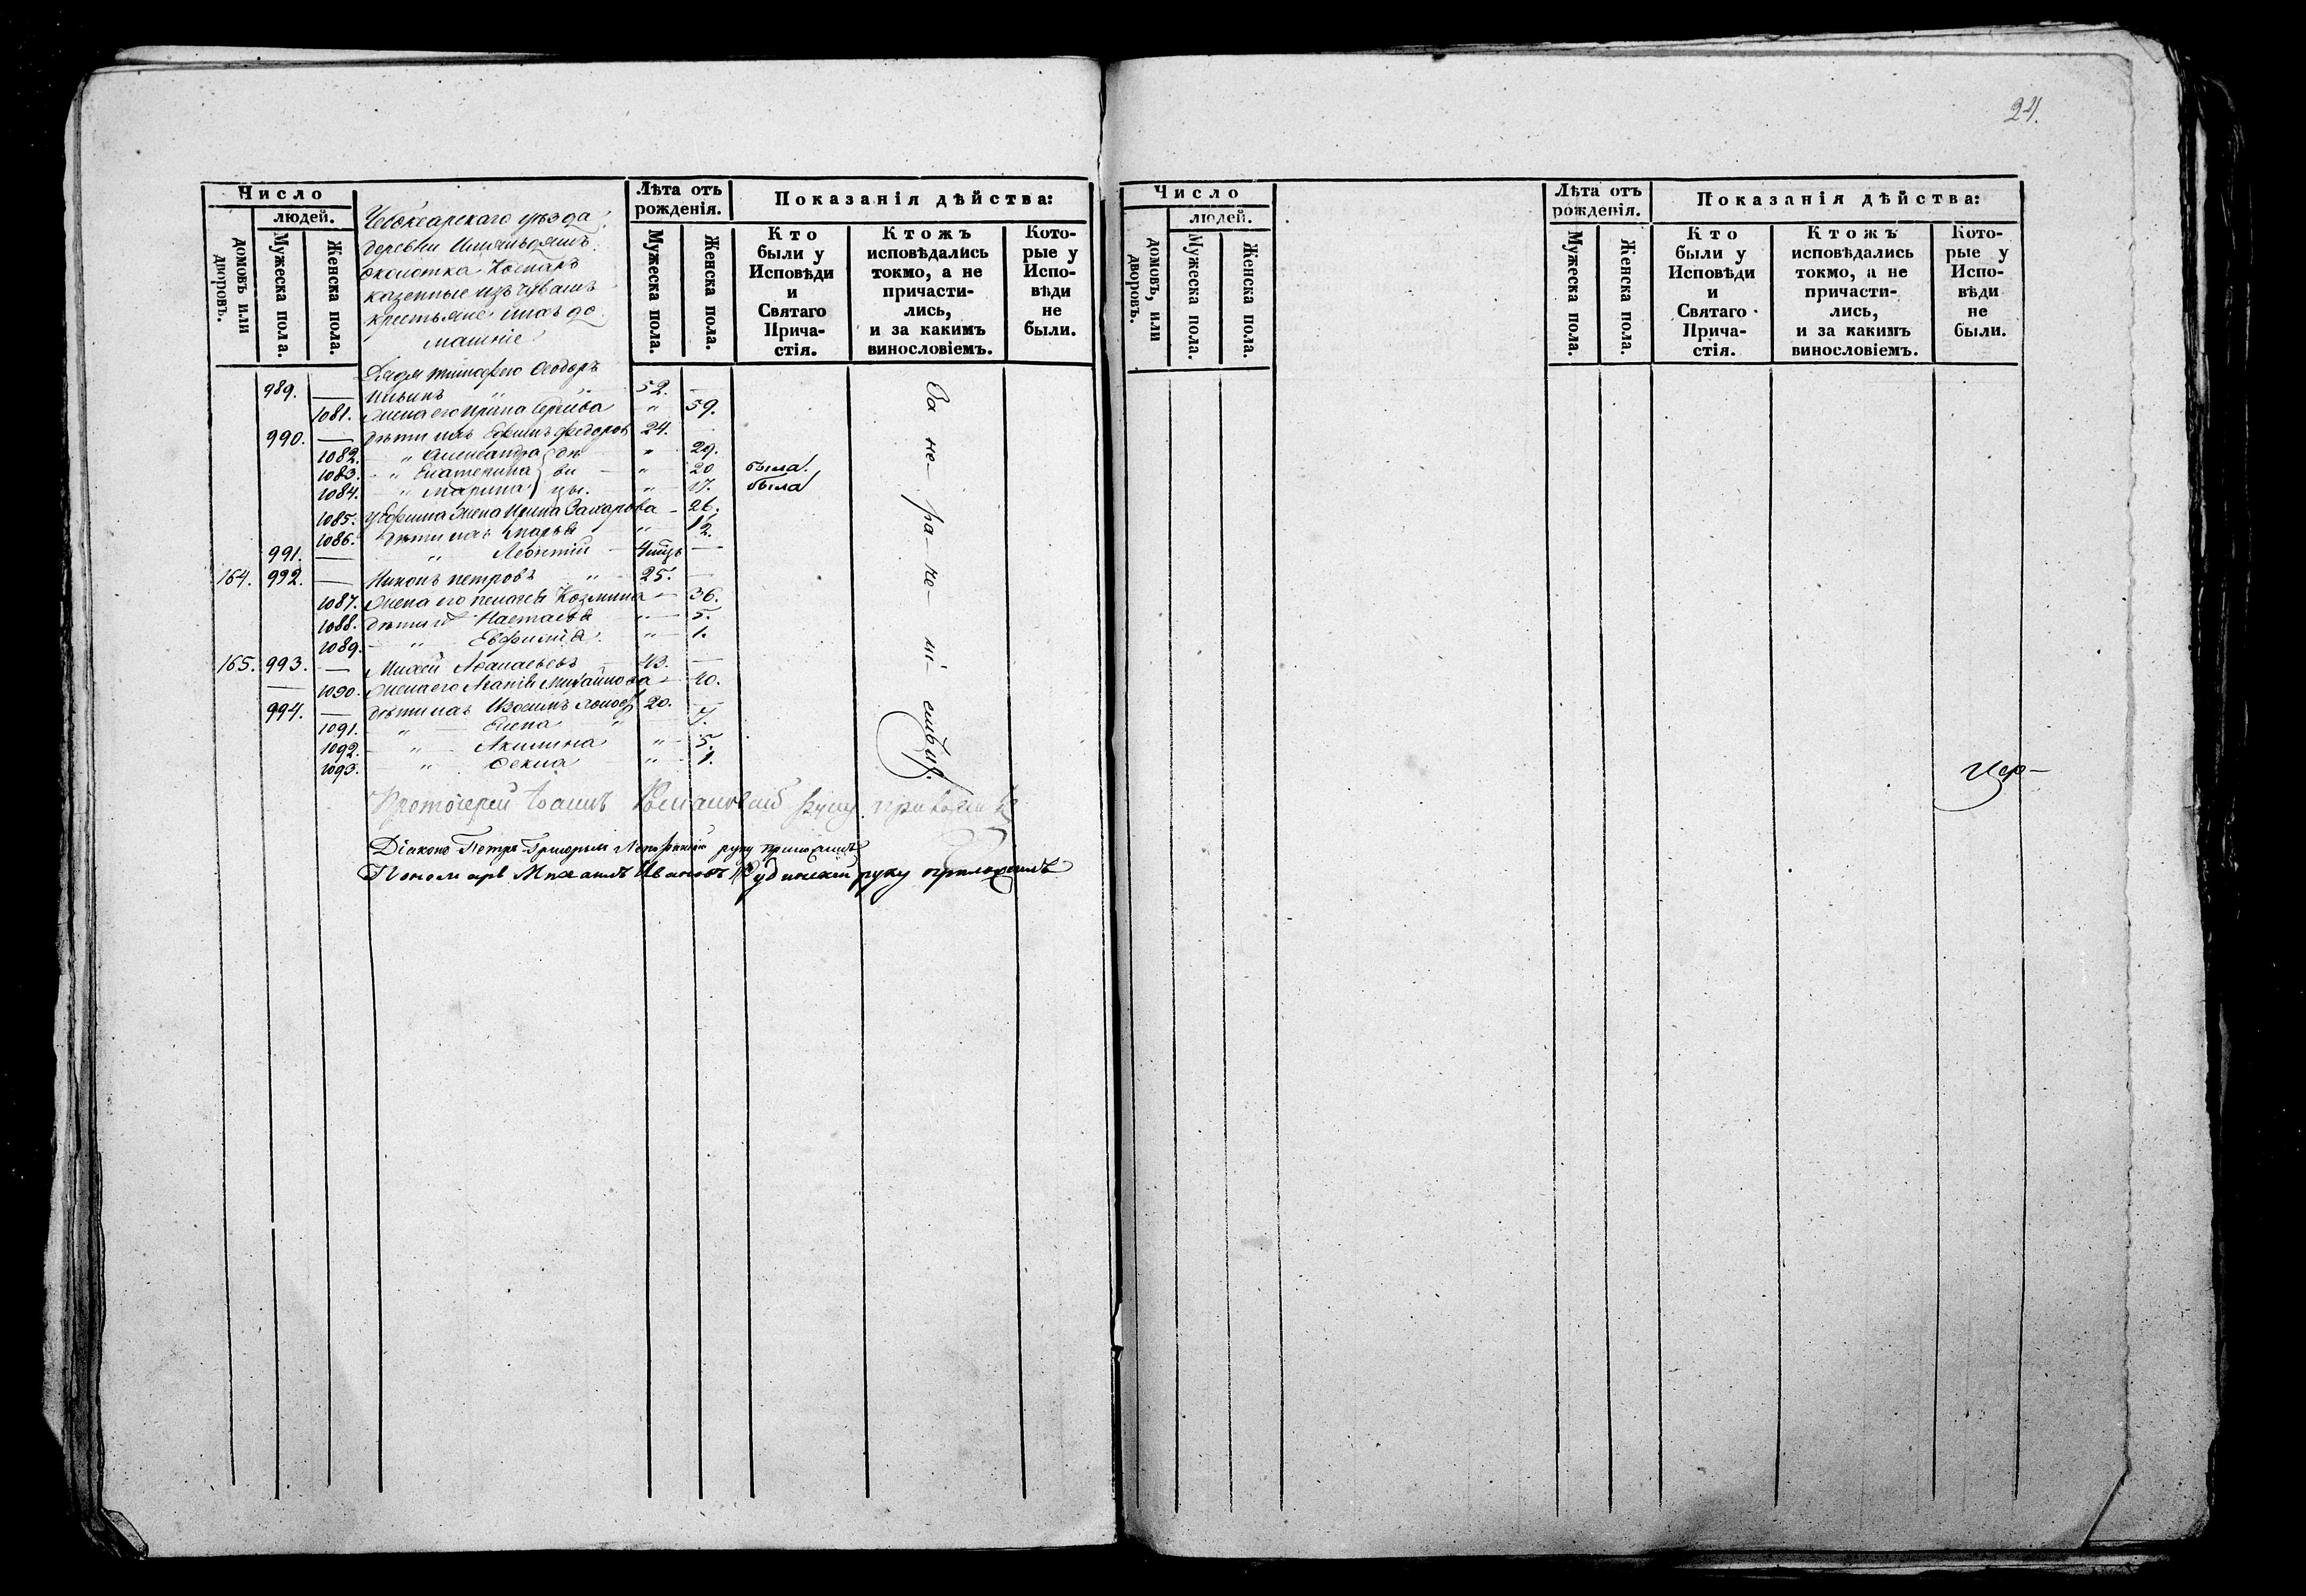 Число
людей.
домовъ или дворовъ.
Мужеска пола.
Женска пола.
Чебоксарскаго уѣзда
деревни
околотка
казенные изъ чувашъ
крестьяне ихъ до
машніе
Лѣта отъ
рожденія.
Мужеска пола.
Женска пола.
Показанія дѣйства:
Кто
были у
Исповѣди
и
Святаго
Прича-
стія.
Ктожъ
исповѣдались
токмо, а не
причасти-
лись,
и за какимъ
винословіемъ.
Кото-
рые у
Испо-
вѣди
не
были.
Дядя Ѳеодоръ
989. — Ильинъ „ 52. —
1081. Жена его Ирина „ 59.
990. — дѣти ихъ Ефимъ Федоровъ 24. —
1082. „ Александра дѣ „ 29.
1083. „ Екатерина ви „ 20 была.
1084. „ Марина цы. „ 17. была
1085. У Ефима жена Ирина Захарова 26.
1086. Дѣти ихъ Марья „ 12.
991. — „ Леонтій —
164. 992. — Никонъ Петровъ „ 25. —
1087. Жена его Пелагея Козмина 36.
1088. дѣти Настасья „ 5.
1089. „ Евфимія „ 1.
165. 993. — Михей Аѳанасьевъ 43. —
— 1090. Жена его Агапія Михайлова 40.
994. — дѣти ихъ 20. —
1091. „ Елена „ 7.
1092. „ Акилина „ 5.
1093. „ Ѳекла „ 1.
За не-ра-че-ні-емъ
Протоіерей Іоаннъ руку приложилъ
Діаконъ Петръ руку приложилъ
Пономарь Михаилъ Ивановъ руку приложилъ
24.
Число
людей.
домовъ, или дворовъ.
Мужеска пола.
Женска пола.
Лѣта отъ
рожденія.
Мужеска пола.
Женска пола.
Показанія дѣйства:
Кто
были у
Исповѣди
и
Святаго
Прича-
стія.
Ктожъ
исповѣдались
токмо, а не
причасти-
лись,
и за какимъ
винословіемъ.
Кото-
рые у
Испо-
вѣди
не
были.